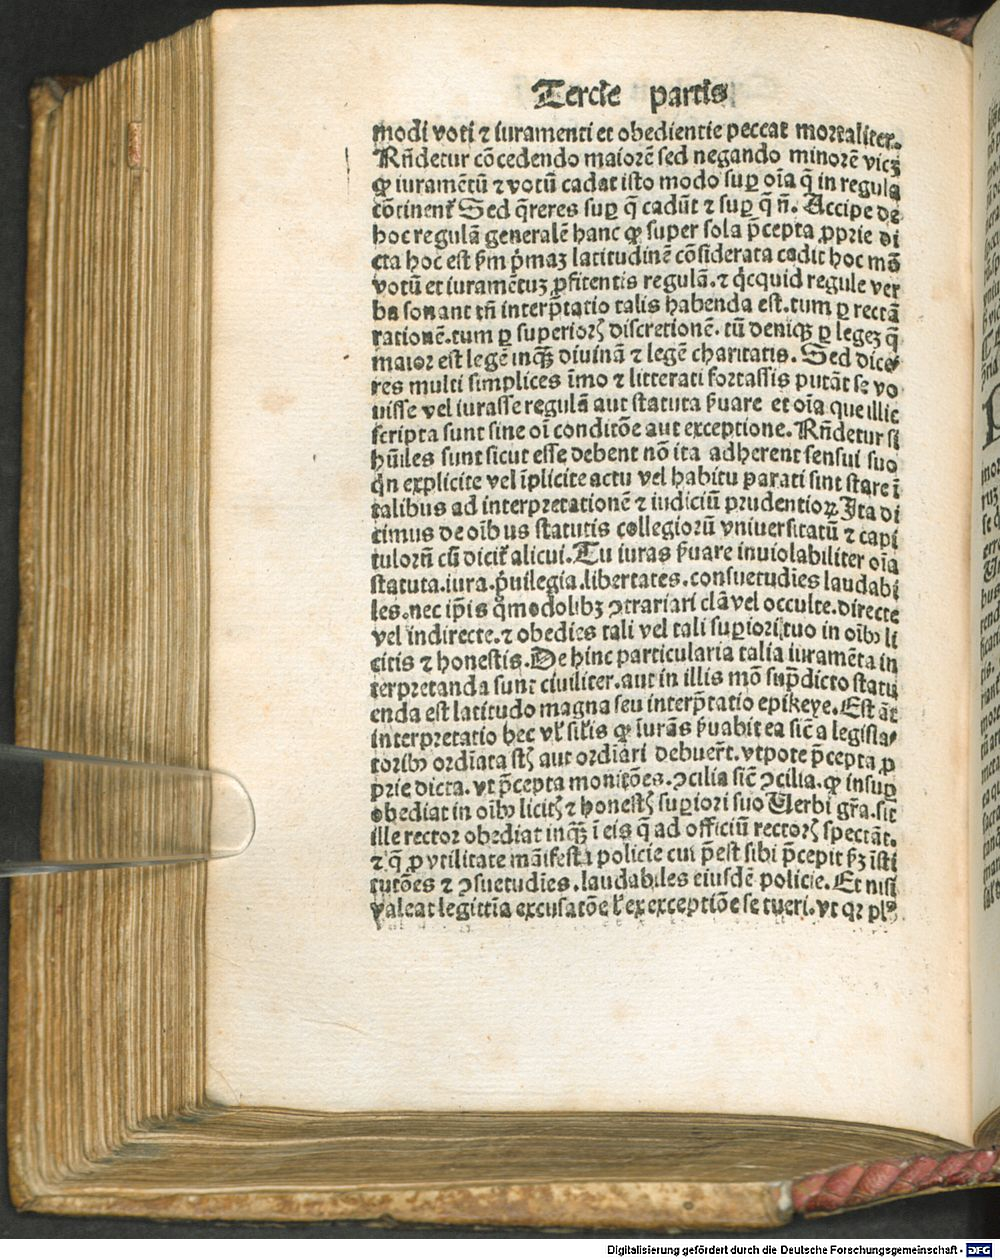 Tercie partis
modi voti ⁊ iuramenti et obedientie peccat mortaliter.
Rñdetur cōcedendo maiorē sed negando minorē vicꝫ
ꝙ iuramētū ⁊ votū cadat isto modo suꝑ oīa q̄ in regula
cōtinent᷑ Sed q̄reres suꝑ q̄ cadūt ⁊ suꝑ q̄ ñ. Accipe de
hoc regulā generalē hanc ꝙ super sola p̄cepta ꝓprie di
cta hoc est ẜm p̄maꝫ latitudinē cōsiderata cadit hoc mō
votū et iuramētuꝫ ꝓfitentis regulā. ⁊ q̇cquid regule ver
ba sonant tñ interp̄tatio talis habenda est. tum ꝑ rectā
rationē. tum ꝑ superioꝝ discretionē. tū deniqꝫ ꝑ legeꝫ q̄
maior est legē inqꝫ diuinā ⁊ legē charitatis. Sed dice
res multi simplices īmo ⁊ litterati fortassis putāt se vo
uisse vel iurasse regulā aut statuta ẜuare et oīa que illic
scripta sunt sine oī conditōe aut exceptione. Rñdetur si
hūiles sunt sicut esse debent nō ita adherent sensui suo
q̇n explicite vel īplicite actu vel habitu parati sint stare ī
talibus ad interpretationē ⁊ iudiciū prudentioꝝ Ita di
cimus de oībus statutis collegiorū vniuersitatū ⁊ capi
tulorū cū dicit᷑ alicui. Tu iuras ẜuare inuiolabiliter oīa
statuta. iura. p̄uilegia. libertates. consuetudīes laudabi
les. nec ip̄is q̄modolibꝫ ꝯtrariari clā vel occulte. directe
vel indirecte. ⁊ obedies tali vel tali suꝑiori tuo in oībꝰ li
citis ⁊ honestis. De hinc particularia talia iuramēta in
terpretanda sunt ciuiliter. aut in illis mō sup̄dicto statu
enda est latitudo magna seu interp̄tatio epikeye. Est āt
interpretatio hec vl̓ sil̓is ꝙ iurās ẜuabit ea sic̄ a legisla
toribꝰ ordīata sꝫ aut ordīari debuer̄t. vtpote p̄cepta ꝓ
prie dicta. vt p̄cepta monitōes. ꝯcilia sic̄ ꝯcilia. ꝙ insuꝑ
obediat in oībꝰ licitꝭ ⁊ honestꝭ suꝑiori suo Uerbi gr̄a. sit
ille rector obediat inqꝫ ī eis q̄ ad officiū rectoꝝ spectāt.
⁊ q̄ ꝓ vtilitate māifesta policie cui p̄est sibi p̄cepit ẜꝫ īsti
tutōes ⁊ ꝯsuetudīes. laudabiles eiusdē policie. Et nisi
valeat legittīa excusatōe l̓ ex exceptiōe se tueri. vt qꝛ plꝰ
Digitalisierung gefördert durch die Deutsche Forschungsgemeinschaft - DFG